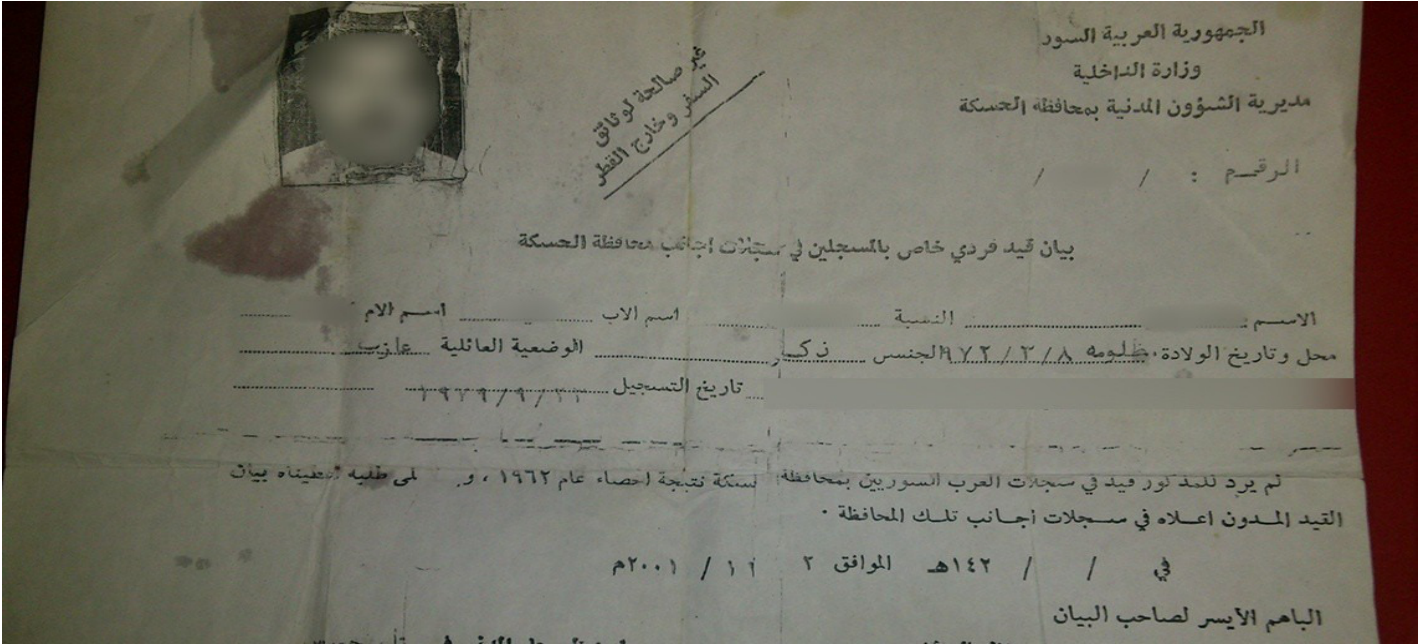 الجمهورية العربية السور
وزارة الداخلية
مديرية الشؤون المدنية بمحافظة الحسكة
غير صالحة لوثائق
السفر وخارج القطر
الرقم : / /
بيان قيد فردي خاص بالمسجلين في سجلات اجانب محافظة الحسكة
الاسم : النسبة اسم الاب اسم الام
محل وتاريخ الولادة ٩٧٢/٣/٨ الجنس ذكر الوضعية العائلية عازب
تاريخ التسجيل
لم يرد للمذكور قيد في سجلات العرب السوريين بمحافظة سكة نتيجة احصاء عام ١٩٦٢ ، و لى طلبه اعطيناه بيان
القيد المدون اعلاه في سجلات أجانب تلك المحافظة ٠
في / / ١٤٢هـ الموافق ٢ ١١ / ٢٠٠١م
الباهم الأيسر لصاحب البيان